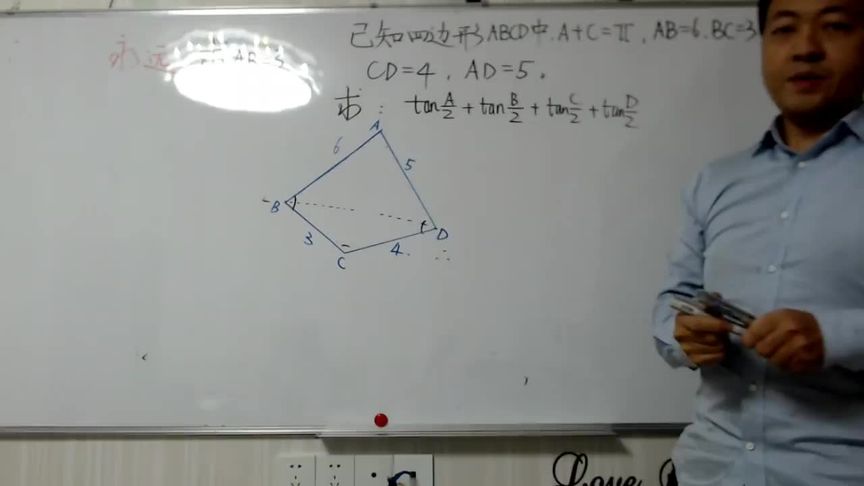 已知四边形ABCD中.A+C=π,AB=6.BC=3
CD=4,AD=5。
求: tan A/2 + tan B/2 + tan C/2 + tan D/2
永远
A
6
5
B
3
4.
D
C
∴
Love